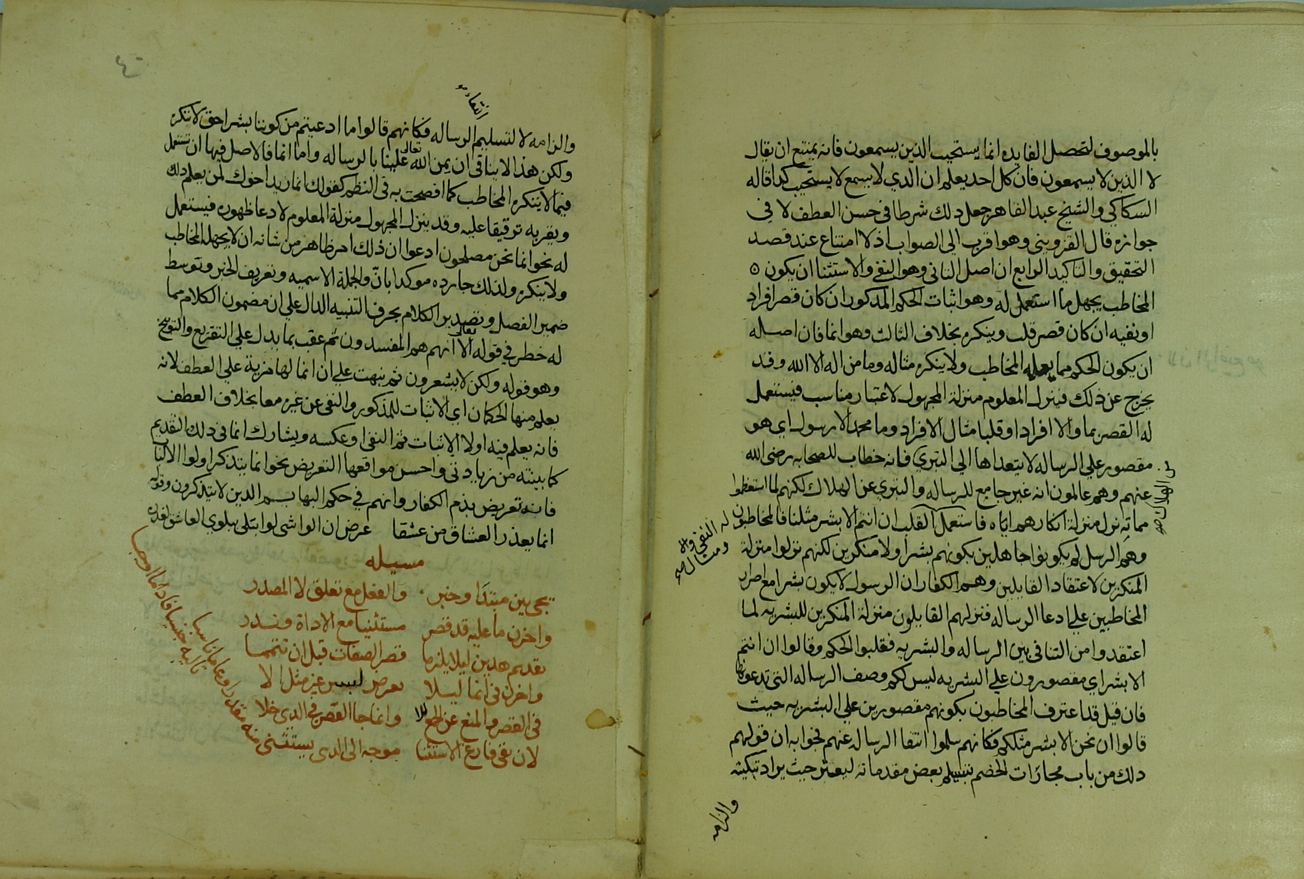 بالموصوف لتحصل الفايده انما يستجيب الذين يسمعون فانه يمتنع ان يقال
لا الذين لا يسمعون فان كل احد يعلم ان الذي لا يسمع لا يستجيب كذا قاله
السكاكي والشيخ عبد القاهر جعل ذلك شرطا في حسن العطف لا في
جوازه قال القزويني وهو اقرب الى الصواب اذ لا امتناع عند قصد
التحقيق والتاكيد الرابع ان اصل الثاني وهو النفي والاستثنا ان يكون
المخاطب يجهل ما استعمل له وهو اثبات الحكم المذكور ان كان قصر افراد
او نفيه ان كان قصر قلب وينكره بخلاف الثالث وهو انما فان اصله
ان يكون الحكم مما يعلمه المخاطب ولا ينكره مثاله وما من اله الا الله وقد
يخرج عن ذلك فينزل المعلوم منزلة المجهول لاعتبار مناسب فيستعمل
له القصر بما والا افرادا وقلبا مثال الافراد وما محمد الا رسول اي هو
مقصور على الرساله لا يتعداها الى التبري فانه خطاب للصحابه رضي الله
عنهم وهم عالمون انه غير جامع للرساله والتبري عن الهلاك لكنهم لما استعظموا
مماته نزل منزلة انكارهم اياه فاستعمل القلب ان انتم الا بشر مثلنا فالمخاطبون
له النفي
ومثال صح
وهم الرسل لم يكونوا جاهلين بكونهم بشرا ولا منكرين لكنهم نزلوا منزلة
المنكرين لاعتقاد القايلين وهم الكفار ان الرسول لا يكون بشرا مع اصرار
المخاطبين على ادعا الرساله فنزلهم القايلون منزلة المنكرين للبشريه لما
اعتقدوا من التنافي بين الرساله والبشريه فقلبوا الحكم وقالوا ان انتم
الا بشر اي مقصورون على البشريه ليس لكم وصف الرساله التي تدعونها
فان قيل قد اعترف المخاطبون بكونهم مقصورين على البشريه حيث
قالوا ان نحن الا بشر مثلكم فكانهم سلموا انتفا الرساله عنهم فجوابه ان قولهم
ذلك من باب مجازات الخصم بتسليم بعض مقدماته ليعثر حيث يراد تبكيته
والزامه
والزامه لا لتسليم الرساله فكانهم قالوا ما ادعيتم من كوننا بشرا حق لا ننكره
انتفا صح
ولكن هذا لا ينافي ان يمن الله تعالى علينا بالرساله واما انما فالاصل فيها ان تستعمل
فيما لا ينكره المخاطب كما افصحت به في النظم كقولك انما زيد اخوك لمن يعلم ذلك
ويقربه ترقيقا عليه وقد ينزل المجهول منزلة المعلوم لادعا ظهوره فيستعمل
له نحو انما نحن مصلحون ادعوا ان ذلك امر ظاهر من شانه ان لا يجهله المخاطب
ولا ينكره ولذلك جا رده موكدا بان والجملة الاسميه وتعريف الخبر وتوسط
ضمير الفصل وتصدير الكلام بحرف التنبيه الدال على ان مضمون الكلام مما
له خطر في قوله تعالى الا انهم هم المفسدون ثم عقب بما يدل على التقريع والتوبيخ
وهو قوله ولكن لا يشعرون ثم نبهت على ان انما لها مزية على العطف لانه
يعلم منها الحكمان اي الاثبات للمذكور والنفي عن غيره معا بخلاف العطف
فانه يعلم فيه اولا الاثبات ثم النفي او عكسه ويشارك انما في ذلك التقديم
كما بينته من زيادتي واحسن مواقعها التعريض نحو انما يتذكر اولوا الالباب
فانه تعريض بذم الكفار وانهم في حكم البهايم الذين لا يتذكرون وقوله
انما يعذر العشاق من عشقا عرض ان الواشي لو ابتلي ببلوي العاشق لعذره
مسيله
يجي بين مبتدا وخبر والفعل مع تعلق لا المصدر
واخرن ما عليه قد قصر مستثنيا مع الاداة وندر
تقديم هذين ليلا يلزما قصر الصفات قبل ان تتمما
واخرن في انما ليلا يعرض لبس غير مثل الا
في القصر والمنع عن الجمع بلا وانما جا القصر في الذي خلا
لان نفي فارغ الاستثنا موجه الى الذي يستثنى